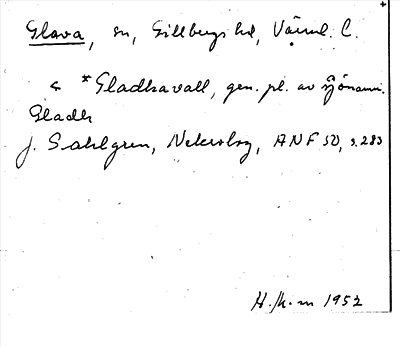 Glava, sn, Gillbergs hd, Värml. l.
< *Gladhavall, gen. pl. av sjönamn.
Gladh
J. Sahlgren, Nekrolog, ANF 50, s. 283
1952